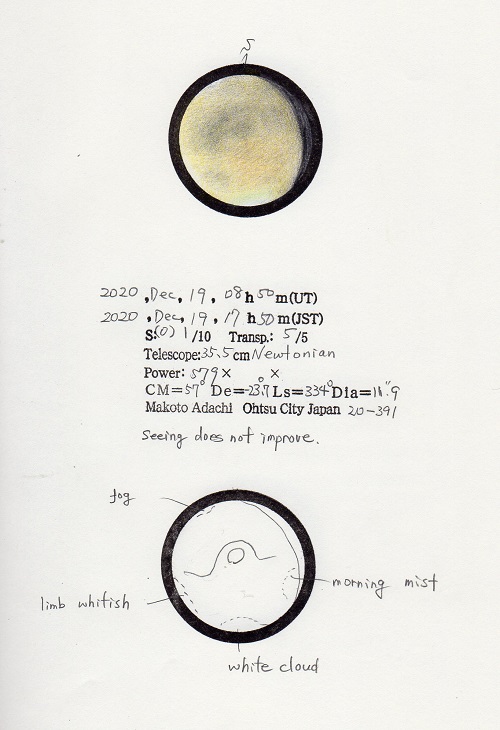 S
2020 ,Dec, 19, 08 h 50 m(UT)
2020 ,Dec, 19, 17 h 50 m(JST)
S:(0) 1 /10 Transp.: 5 /5
Telescope:35.5cm Newtonian
Power: 579 × ×
CM=57° De=-23.°7 Ls=334° Dia=11".9
Makoto Adachi Ohtsu City Japan 20-391
Seeing does not improve.
fog
morning mist
limb whitish
white cloud